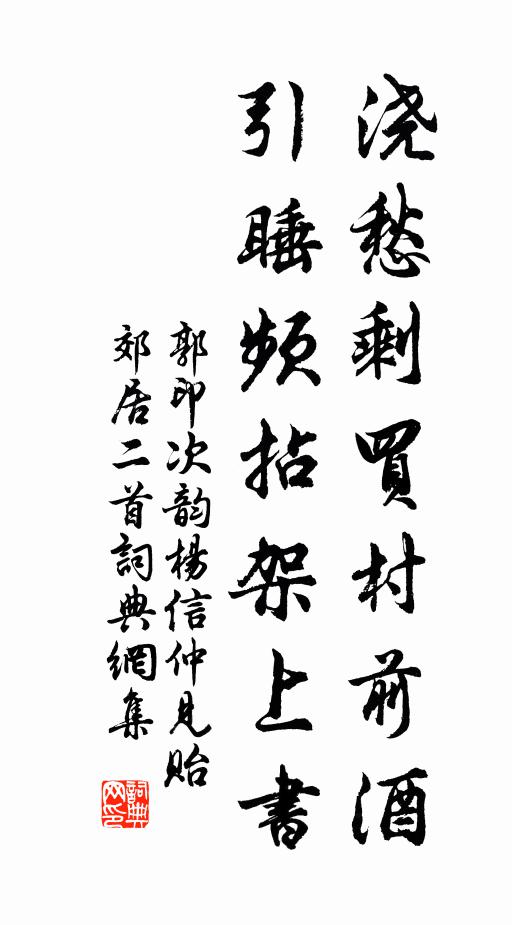 浇愁剩買村前酒
引睡频拈架上書
郭印次韵楊信仲見貽
郊居二首詞典網集
詞典网印